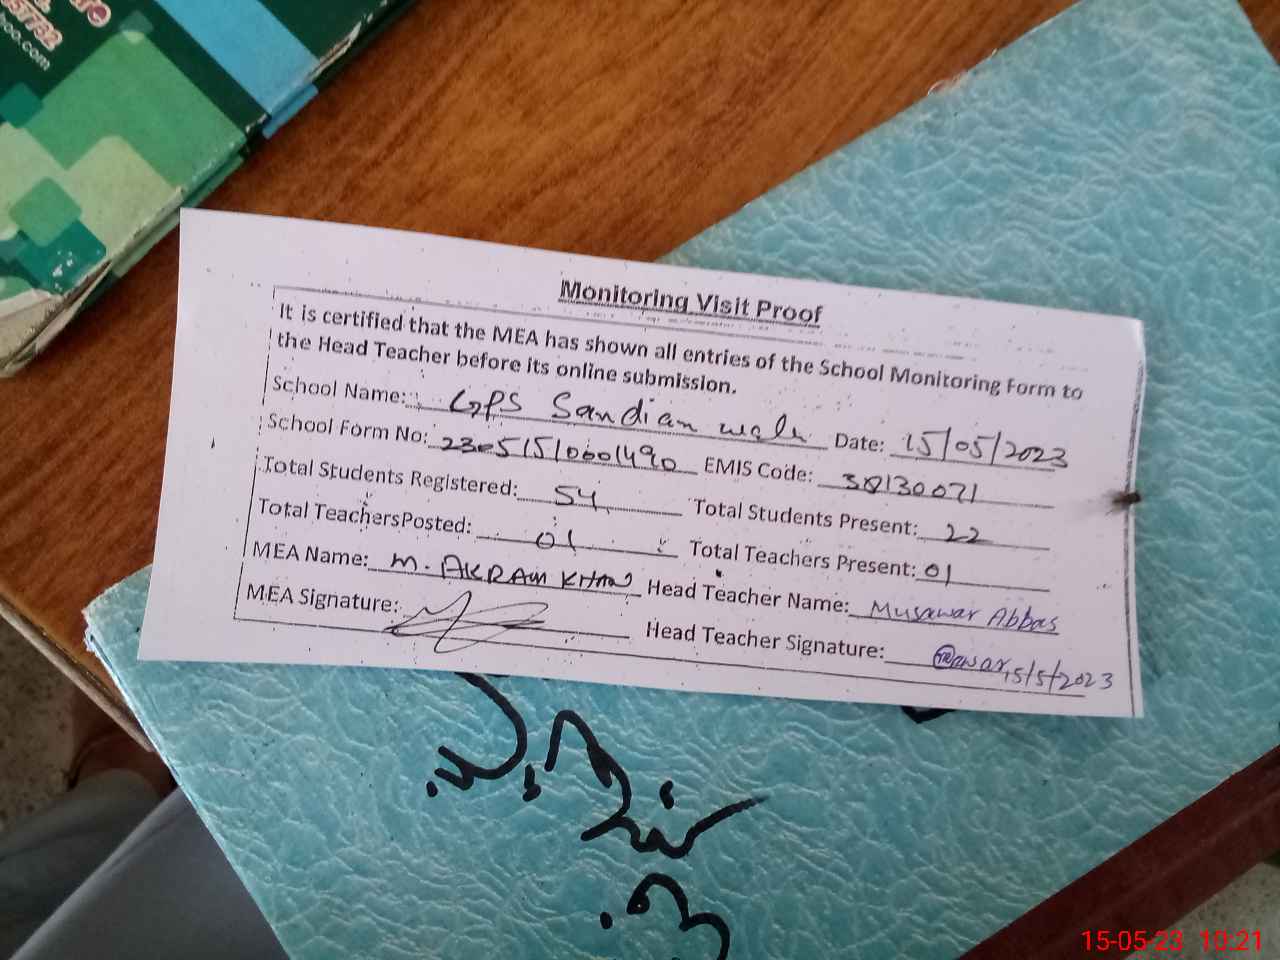 57732
oo.com
Monitoring Visit Proof
It is certified that the MEA has shown all entries of the School Monitoring Form to
the Head Teacher before its online submission.
School Name: GPS Sandian wali Date: 15/05/2023
School Form No: 23051510601490 EMIS Code: 38130071
Total Students Registered: 54 Total Students Present: 22
Total TeachersPosted: 01 Total Teachers Present: 01
MEA Name: M. AKRAM KHAN Head Teacher Name: Musawar Abbas
MEA Signature: Head Teacher Signature: 15/5/2023
15-05-23 10:21